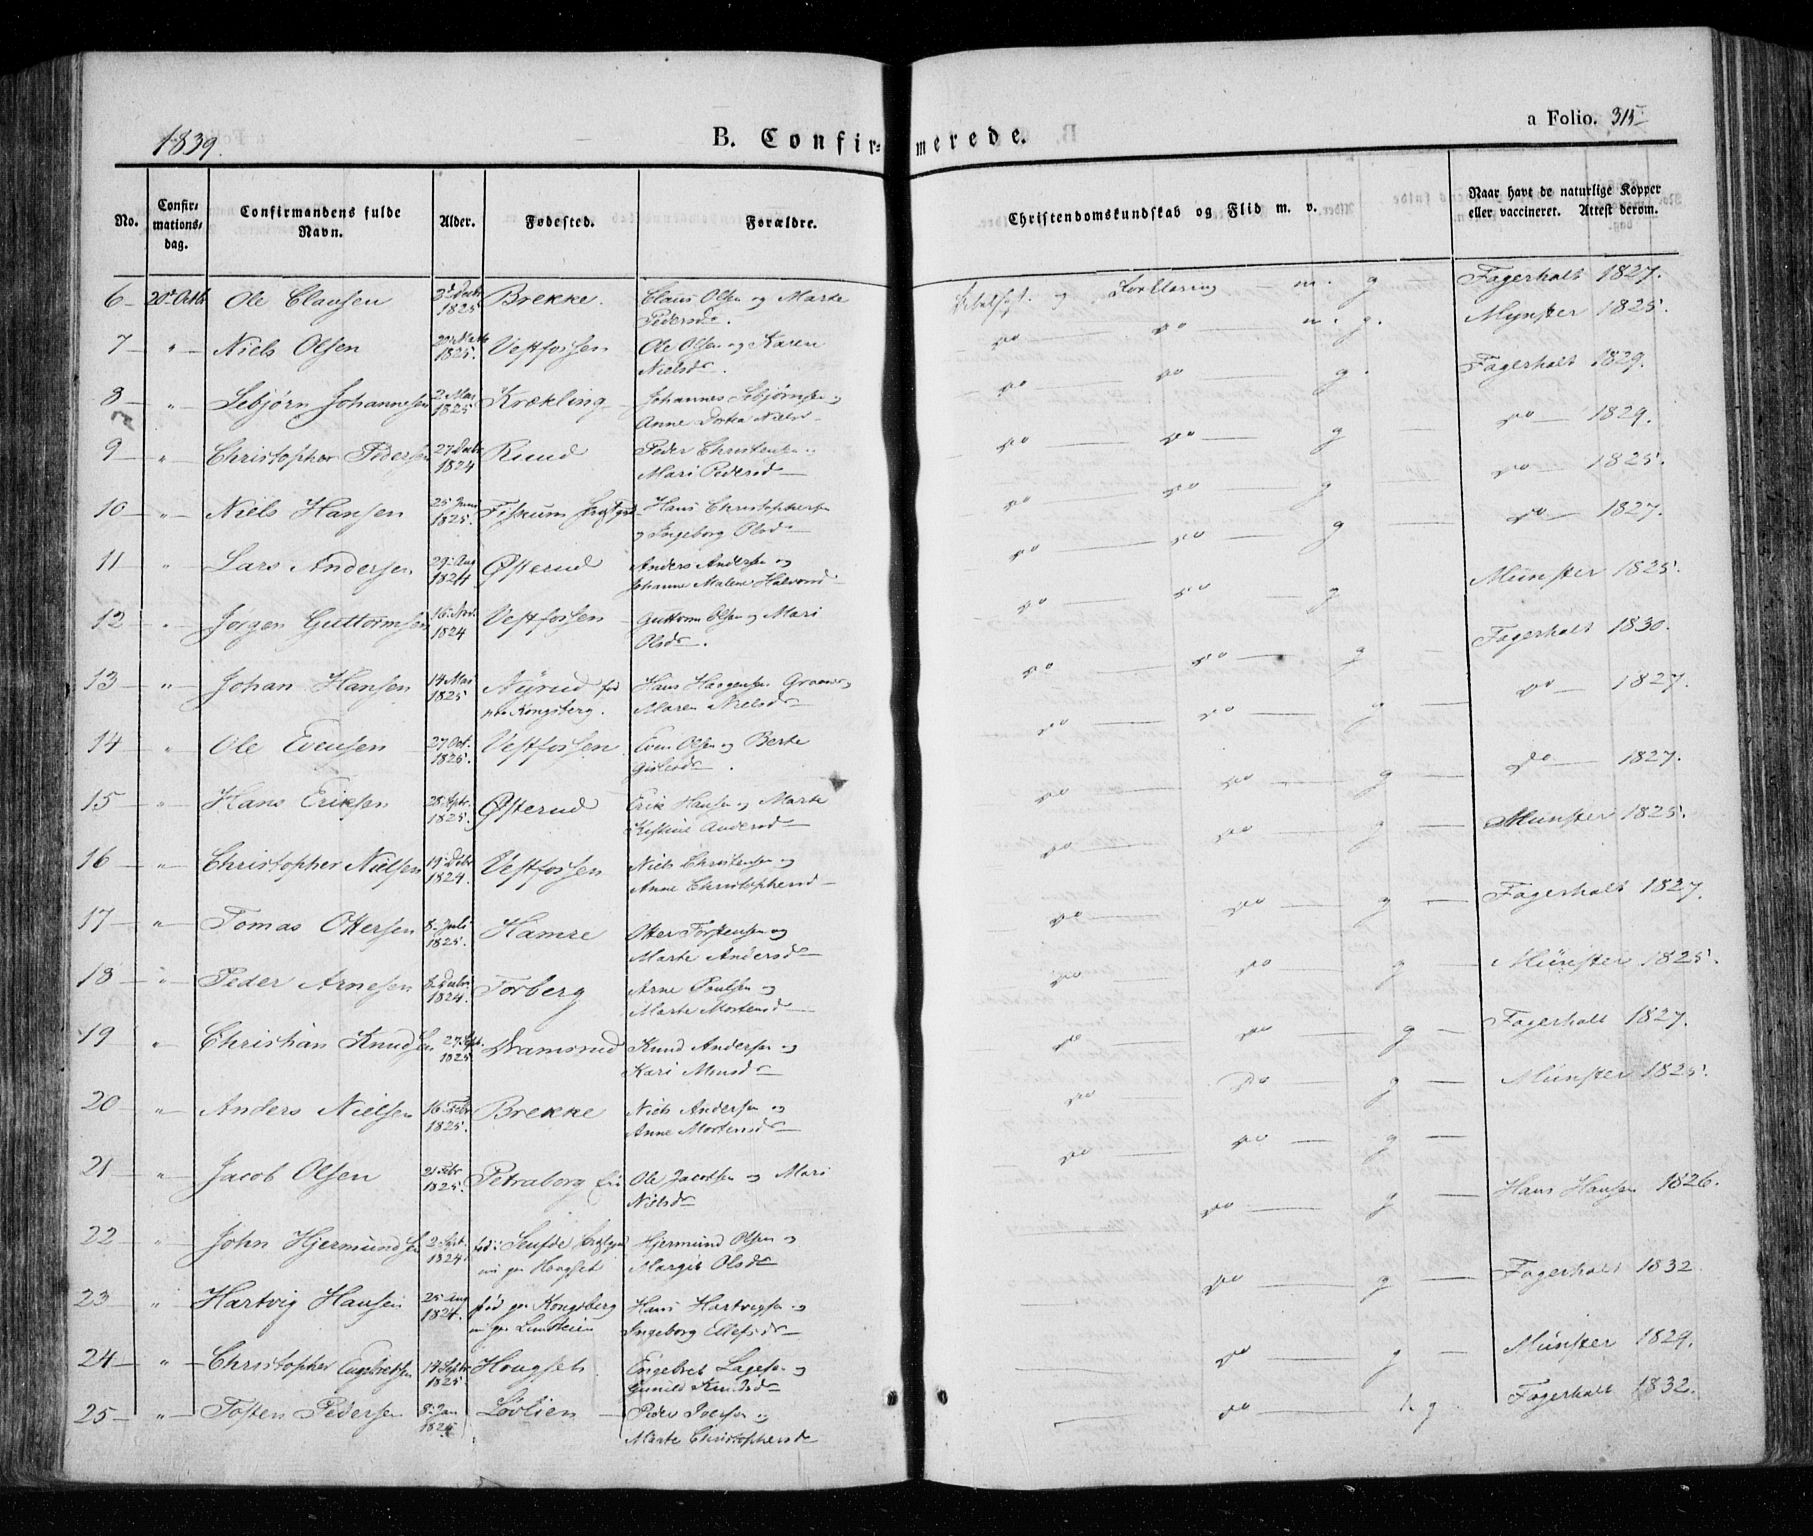 1839.
B. Confir=merede.
a Folio. 315
No.
Confir=mations=dag.
Confirmandens fulde Navn.
Alder.
Fødested.
Forældre.
Christendomskundskab og Flid m. v.
Naar havt de naturlige Kopper eller vaccineret. Attest derom.
6 20de Octb Ole Clausen 1825 Brekke. Claus Olsen og Marte Pedersdr. og Forklaring m. g Fagerholt 1827.
7 " Niels Olsen 1825. Vestfossen Ole Olsen og Karen Nielsdr. do do m. g. Mynster 1825.
8 " Sebjørn Johannesen 2 Mai 1825 Krækling Johannes Sebjørnsen og Anne Dorthea Nielsd do do g. Fagerholt 1829.
9 " Christopher Pedersen 27 Decbr 1824 Ruud Peder Christensen og Mari Pedersd do do g do 1829.
10 " Niels Hansen 25 Juni 1825. Fiskum Hans Christophersen og Ingeborg Olsd do do g do 1825.
11 " Lars Andersen 29 Aug 1824 Østerud Anders Andersen og Johanne Malene Halvorsd do do g do 1827.
12 " Jørgen Guttormsen 16 Nov. 1824 Vestfossen Guttorm Olsen og Mari Olsdr. do do g Münster 1825.
13 " Johan Hansen 14 Mai 1825 Nyrud fød paa Kongsberg. Hans Haagensen og Maren Nielsd do do g Fagerholt 1830.
14 " Ole Evensen 27 Oct. 1825. Vestfossen Even Olsen og Berte Gislesdr. do do g do 1827.
15 " Hans Eriksen 28 Sptr. 1825. Østerud Erik Hansen og Marte Kistine Andersd do do g do 1827.
16 " Christopher Nielsen 19 Decbr 1824. Vestfossen Niels Christensen og Anne Christophersd do do g Münster 1825.
17 " Tomas Ottersen 8 Juli 1825. Hamre Otter Torstensen og Marte Andersd do do g Fagerholt 1827.
18 " Peder Arnesen Decbr 1824. Torberg Arne Poulsen og Marte Mortensd do do g Münster 1825.
19 " Christian Knudsen 27 Spt. 1825 Dramsrud Knud Andersen og Kari Monsd do do g Fagerholt 1827.
20 " Anders Nielsen 16 Febr 1825. Brekke Niels Andersen og Anne Mortensd do do g Münster 1825.
21 " Jacob Olsen 21 Febr 1825. Petraborg Ole Jacobsen og Mari Nielsdr do do g
22 " John Hjermundsen 2 Spt. 1824. fød i Hougset Hjermund Olsen og Margit Olsd do g Hans Hansen 1826.
23 " Hartvig Hansen 25 Aug 1824. fød paa Kongsberg Hans Hartvigsen og Ingeborg Ellefsd do g Fagerholt 1832
24 " Christopher Engebretsen 14 Septr 1825. Hougset Engebret Lagesen og Gunild Knudsd do g Münster 1829.
25 " Tosten Pedersen 8 Jan Løvlien Peder Joensen og Marte Christophersd do g Fagerholt 1832.